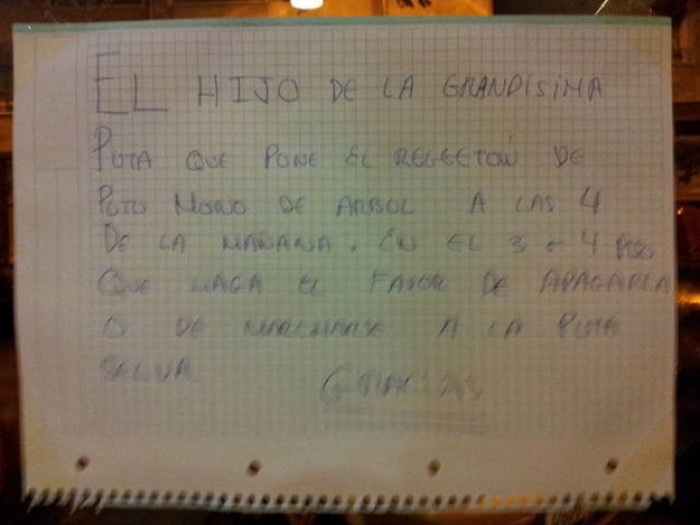 EL HIJO DE LA GRANDÍSIMA
PUTA QUE PONE EL REGGETÓN DE
PUTO MONO DE ARBOL A LAS 4
DE LA MAÑANA. EN EL 3 o 4 PISO
QUE HAGA EL FAVOR DE APAGARLA
O DE MARCHARSE A LA PUTA
SELVA
GRACIAS